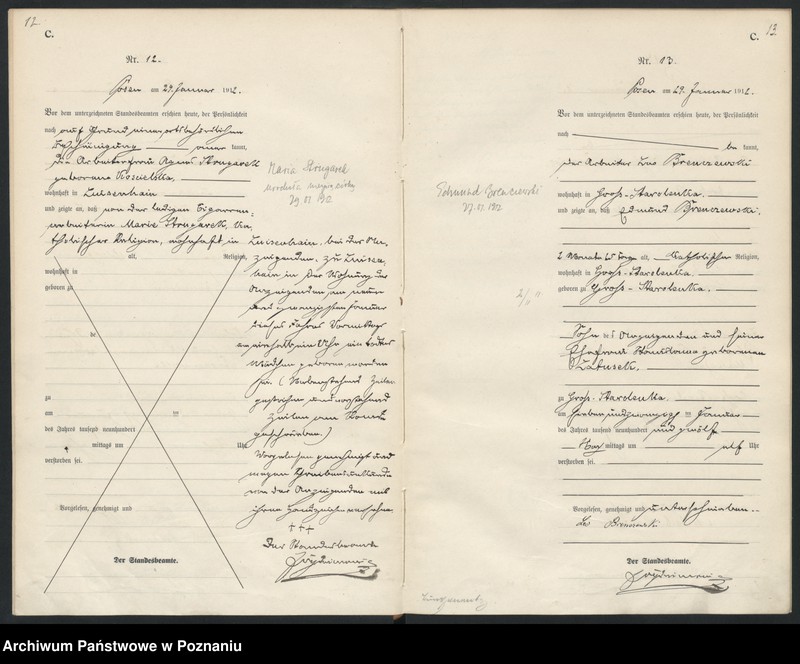 12.
C.
Nr. 12.
Posen am 29. Januar 1912.
Vor dem unterzeichneten Standesbeamten erschien heute, der Persönlichkeit
nach auf Grund einer ortsbehördlichen
Bescheinigung kannt,
die Arbeiterfrau Agnes Strugarek
geborene
wohnhaft in Luisenhain
und zeigte an, daß von der ledigen Cigarren-
arbeiterin Maria Strugarek, ka-
tholischer Religion, wohnhaft in Luisenhain, bei der An-
alt, Religion,
zeigenden, zu Luisen-
wohnhaft in
hain in der Wohnung der
geboren zu
Anzeigenden am neun
und zwanzigsten Januar
dieses Jahres Vormittags
de
um einhalb ein Uhr ein totes
Mädchen geboren worden
sei. (Vorstehend Zeilen
zu
gestrichen und
am ten
Zeilen am Rande
des Jahres tausend neunhundert
geschrieben.)
mittags um Uhr
verstorben sei.
Vorgelesen, genehmigt und
wegen Schreibensunkunde
von der Anzeigenden mit
Vorgelesen, genehmigt und
ihrem Handzeichen versehen.
+++
Der Standesbeamte
Der Standesbeamte.
Maria Strugarek
29.01.1912
13
C.
Nr. 13.
Posen am 29. Januar 1912.
Vor dem unterzeichneten Standesbeamten erschien heute, der Persönlichkeit
nach be kannt,
der Arbeiter Leo Brenczewski
wohnhaft in Groß-Starolenka.
und zeigte an, daß Edmund Brenczewski,
2 Monate 25 Tage alt, katholischer Religion,
wohnhaft in Groß-Starolenka.
geboren zu Groß-Starolenka.
Sohn des Anzeigenden und seiner
Ehefrau Stanislawa geborenen
zu Groß-Starolenka.
am siebenundzwanzigsten Januar
des Jahres tausend neunhundert und zwölf
Vor mittags um elf Uhr
verstorben sei.
Vorgelesen, genehmigt und unterschrieben.
Leo Brenczewski
Der Standesbeamte.
Edmund Brenczewski
27.01.1912
Archiwum Państwowe w Poznaniu